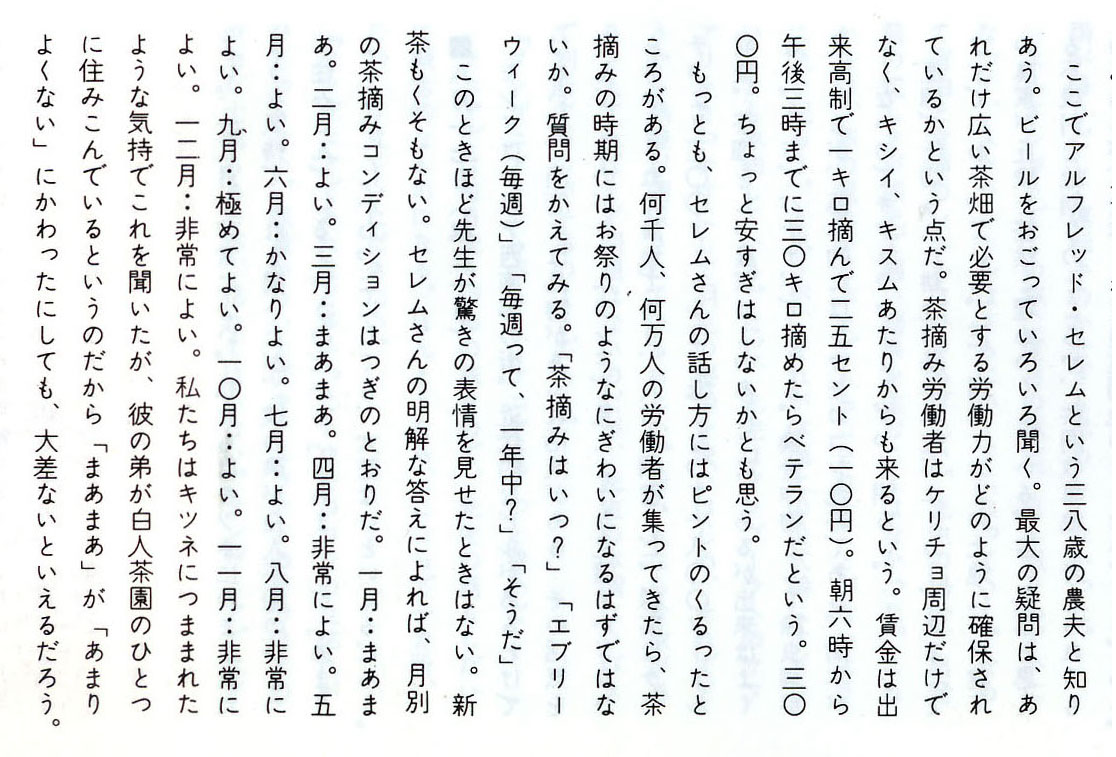 ここでアルフレッド・セレムという三八歳の農夫と知り
あう。ビールをおごっていろいろ聞く。最大の疑問は、あ
れだけ広い茶畑で必要とする労働力がどのように確保され
ているかという点だ。茶摘み労働者はケリチョ周辺だけで
なく、キシイ、キスムあたりからも来るという。賃金は出
来高制で一キロ摘んで二五セント（一〇円）。朝六時から
午後三時までに三〇キロ摘めたらベテランだという。三〇
〇円。ちょっと安すぎはしないかとも思う。
もっとも、セレムさんの話し方にはピントのくるったと
ころがある。何千人、何万人の労働者が集ってきたら、茶
摘みの時期にはお祭りのようなにぎわいになるはずではな
いか。質問をかえてみる。「茶摘みはいつ？」「エブリー
ウィーク（毎週）」「毎週って、一年中？」「そうだ」
このときほど先生が驚きの表情を見せたときはない。新
茶もくそもない。セレムさんの明解な答えによれば、月別
の茶摘みコンディションはつぎのとおりだ。一月：まあま
あ。二月：よい。三月：まあまあ。四月：非常によい。五
月：よい。六月：かなりよい。七月：よい。八月：非常に
よい。九月：極めてよい。一〇月：よい。一一月：非常に
よい。一二月：非常によい。私たちはキツネにつままれた
ような気持でこれを聞いたが、彼の弟が白人茶園のひとつ
に住みこんでいるというのだから「まあまあ」が「あまり
よくない」にかわったにしても、大差ないといえるだろう。